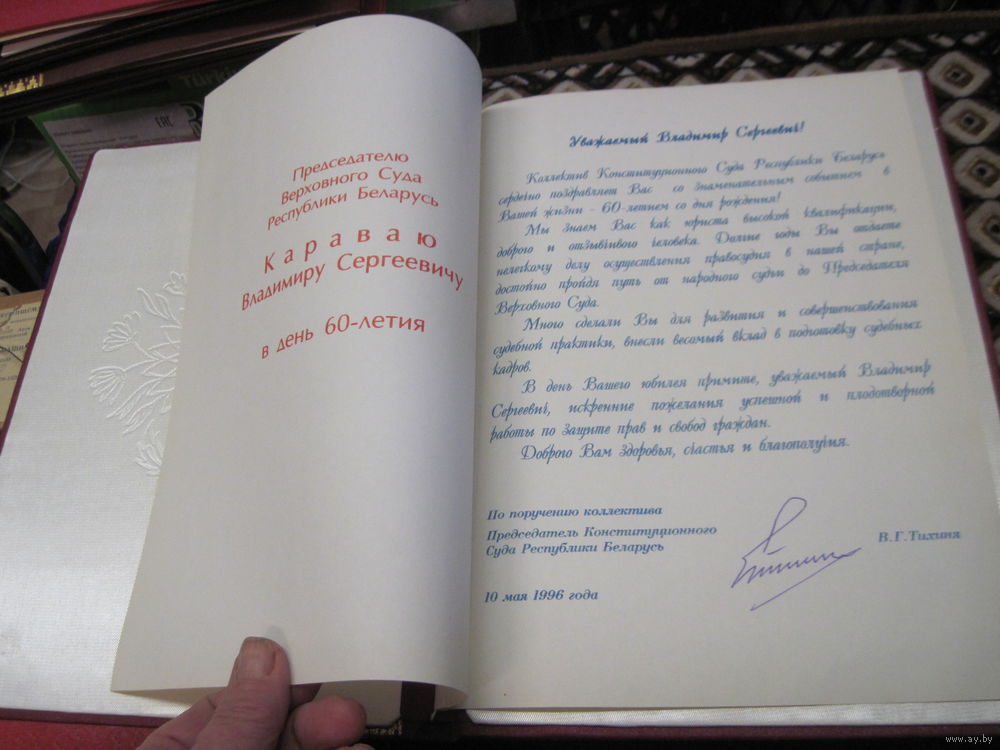 Председателю
Верховного Суда
Республики Беларусь
Караваю
Владимиру Сергеевичу
в день 60-летия
Уважаемый Владимир Сергеевич!
Коллектив Конституционного Суда Республики Беларусь
сердечно поздравляет Вас со знаменательным событием в
Вашей жизни - 60-летием со дня рождения!
Мы знаем Вас как юриста высокой квалификации,
доброго и отзывчивого человека. Долгие годы Вы отдаете
нелегкому делу осуществления правосудия в нашей стране,
достойно пройдя путь от народного судьи до Председателя
Верховного Суда.
Много сделали Вы для развития и совершенствования
судебной практики, внесли весомый вклад в подготовку судебных
кадров.
В день Вашего юбилея примите, уважаемый Владимир
Сергеевич, искренние пожелания успешной и плодотворной
работы по защите прав и свобод граждан.
Доброго Вам здоровья, счастья и благополучия.
По поручению коллектива
Председатель Конституционного
Суда Республики Беларусь
В.Г.Тихиня
10 мая 1996 года
EAC
www.ay.by